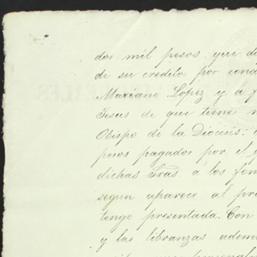 dos mil pesos, que d
de su credito por cond
Mariano Lopez y a f
Jesus de que tiene n
Obispo de la Diocesis:
pesos pagados por el
dichas fras á los fon
segun aparece al pr
tengo presentada. Con
y las libranzas adem